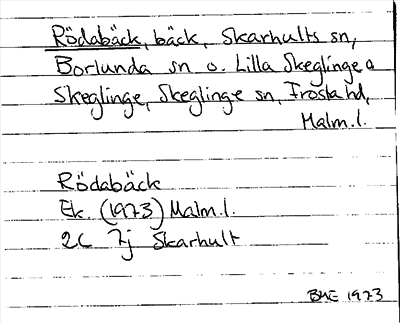 Rödabäck, bäck, Skarhults sn,
Borlunda sn o. Lilla Skeglinge o
Skeglinge, Skeglinge sn, Frosta hd,
Malm.l.
Rödabäck
Ek. (1973) Malm.l.
2C 7j Skarhult
BME 1973